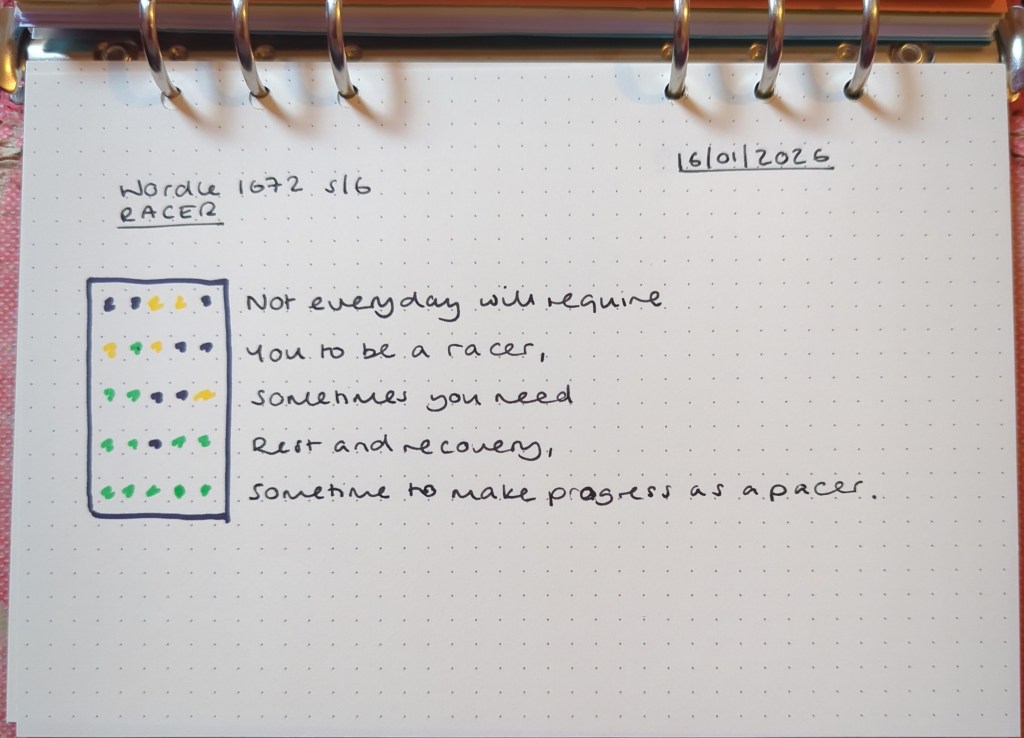 16/01/2026
Wordle 1672 5/6
RACER
Not everyday will require
you to be a racer,
sometimes you need
Rest and recovery,
sometime to make progress as a pacer.